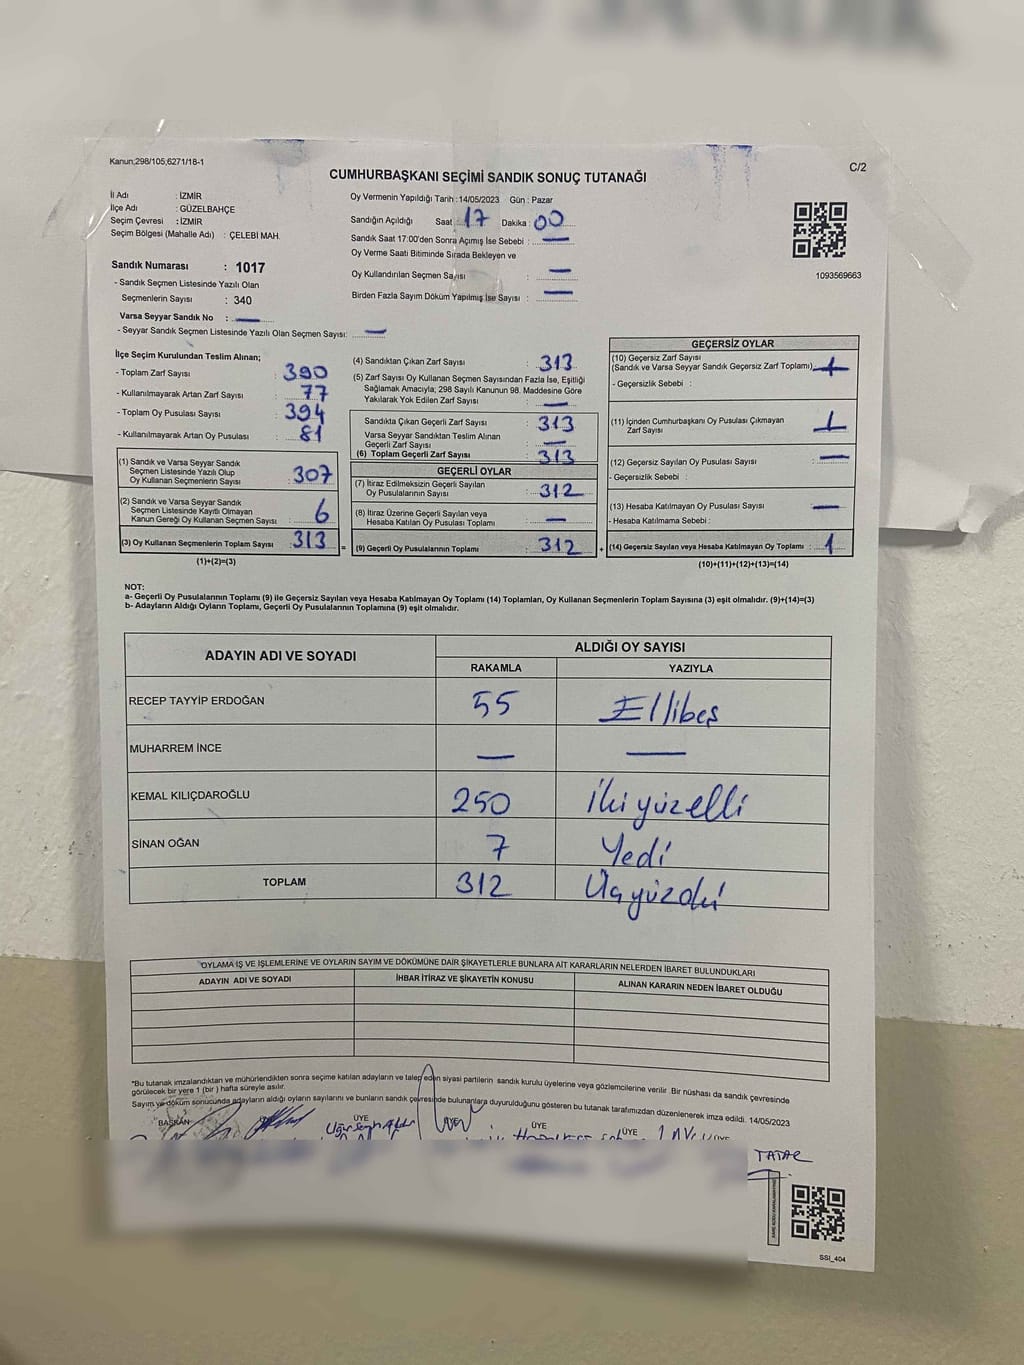 SANDIK
Kanun;298/105;6271/18-1
C/2
CUMHURBAŞKANI SEÇİMİ SANDIK SONUÇ TUTANAĞI
İl Adı : İZMİR
İlçe Adı : GÜZELBAHÇE
Seçim Çevresi : İZMİR
Seçim Bölgesi (Mahalle Adı) : ÇELEBİ MAH.
Oy Vermenin Yapıldığı Tarih :14/05/2023 Gün : Pazar
Sandığın Açıldığı Saat : 17 Dakika : 00
Sandık Saat 17:00'den Sonra Açımış İse Sebebi : —
Oy Verme Saati Bitiminde Sırada Bekleyen ve
Oy Kullandırılan Seçmen Sayısı : —
Birden Fazla Sayım Döküm Yapılmış İse Sayısı : —
1093569663
Sandık Numarası : 1017
- Sandık Seçmen Listesinde Yazılı Olan
Seçmenlerin Sayısı : 340
Varsa Seyyar Sandık No : —
- Seyyar Sandık Seçmen Listesinde Yazılı Olan Seçmen Sayısı: —
İlçe Seçim Kurulundan Teslim Alınan;
- Toplam Zarf Sayısı : 390
- Kullanılmayarak Artan Zarf Sayısı : 77
- Toplam Oy Pusulası Sayısı : 394
- Kullanılmayarak Artan Oy Pusulası : 81
(1) Sandık ve Varsa Seyyar Sandık
Seçmen Listesinde Yazılı Olup
Oy Kullanan Seçmenlerin Sayısı : 307
(2) Sandık ve Varsa Seyyar Sandık
Seçmen Listesinde Kayıtlı Olmayan
Kanun Gereği Oy Kullanan Seçmen Sayısı : 6
(3) Oy Kullanan Seçmenlerin Toplam Sayısı : 313 =
(1)+(2)=(3)
(4) Sandıktan Çıkan Zarf Sayısı : 313
(5) Zarf Sayısı Oy Kullanan Seçmen Sayısından Fazla İse, Eşitliği
Sağlamak Amacıyla; 298 Sayılı Kanunun 98. Maddesine Göre
Yakılarak Yok Edilen Zarf Sayısı : —
Sandıkta Çıkan Geçerli Zarf Sayısı : 313
Varsa Seyyar Sandıktan Teslim Alınan
Geçerli Zarf Sayısı : —
(6) Toplam Geçerli Zarf Sayısı : 313
GEÇERLİ OYLAR
(7) İtiraz Edilmeksizin Geçerli Sayılan
Oy Pusulalarının Sayısı : 312
(8) İtiraz Üzerine Geçerli Sayılan veya
Hesaba Katılan Oy Pusulası Toplamı : —
(9) Geçerli Oy Pusulalarının Toplamı : 312 +
GEÇERSİZ OYLAR
(10) Geçersiz Zarf Sayısı
(Sandık ve Varsa Seyyar Sandık Geçersiz Zarf Toplamı) :
- Geçersizlik Sebebi :
(11) İçinden Cumhurbaşkanı Oy Pusulası Çıkmayan
Zarf Sayısı : 1
(12) Geçersiz Sayılan Oy Pusulası Sayısı : —
- Geçersizlik Sebebi :
(13) Hesaba Katılmayan Oy Pusulası Sayısı : —
- Hesaba Katılmama Sebebi :
(14) Geçersiz Sayılan veya Hesaba Katılmayan Oy Toplamı : 1
(10)+(11)+(12)+(13)=(14)
NOT:
a- Geçerli Oy Pusulalarının Toplamı (9) ile Geçersiz Sayılan veya Hesaba Katılmayan Oy Toplamı (14) Toplamları, Oy Kullanan Seçmenlerin Toplam Sayısına (3) eşit olmalıdır. (9)+(14)=(3)
b- Adayların Aldığı Oyların Toplamı, Geçerli Oy Pusulalarının Toplamına (9) eşit olmalıdır.
ADAYIN ADI VE SOYADI ALDIĞI OY SAYISI
RAKAMLA YAZIYLA
RECEP TAYYİP ERDOĞAN 55 Ellibeş
MUHARREM İNCE — —
KEMAL KILIÇDAROĞLU 250 İkiyüzelli
SİNAN OĞAN 7 Yedi
TOPLAM 312
OYLAMA İŞ VE İŞLEMLERİNE VE OYLARIN SAYIM VE DÖKÜMÜNE DAİR ŞİKAYETLERLE BUNLARA AİT KARARLARIN NELERDEN İBARET BULUNDUKLARI
ADAYIN ADI VE SOYADI İHBAR İTİRAZ VE ŞİKAYETİN KONUSU ALINAN KARARIN NEDEN İBARET OLDUĞU
*Bu tutanak imzalandıktan ve mühürlendikten sonra seçime katılan adayların ve talep eden siyasi partilerin sandık kurulu üyelerine veya gözlemcilerine verilir. Bir nüshası da sandık çevresinde
görülecek bir yere 1 (bir) hafta süreyle asılır.
Sayım ve döküm sonucunda adayların aldığı oyların sayılarını ve bunların sandık çevresinde bulunanlara duyurulduğunu gösteren bu tutanak tarafımızdan düzenlenerek imza edildi. 14/05/2023
BAŞKAN ÜYE ÜYE ÜYE
TATAR
SSI_404